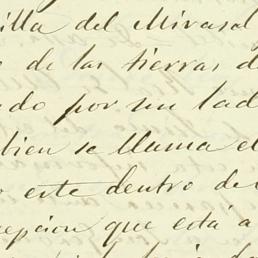 illa del Mirasol
de las tierras d
do por un lad
bien se llama el
este dentro de
epcion que está a